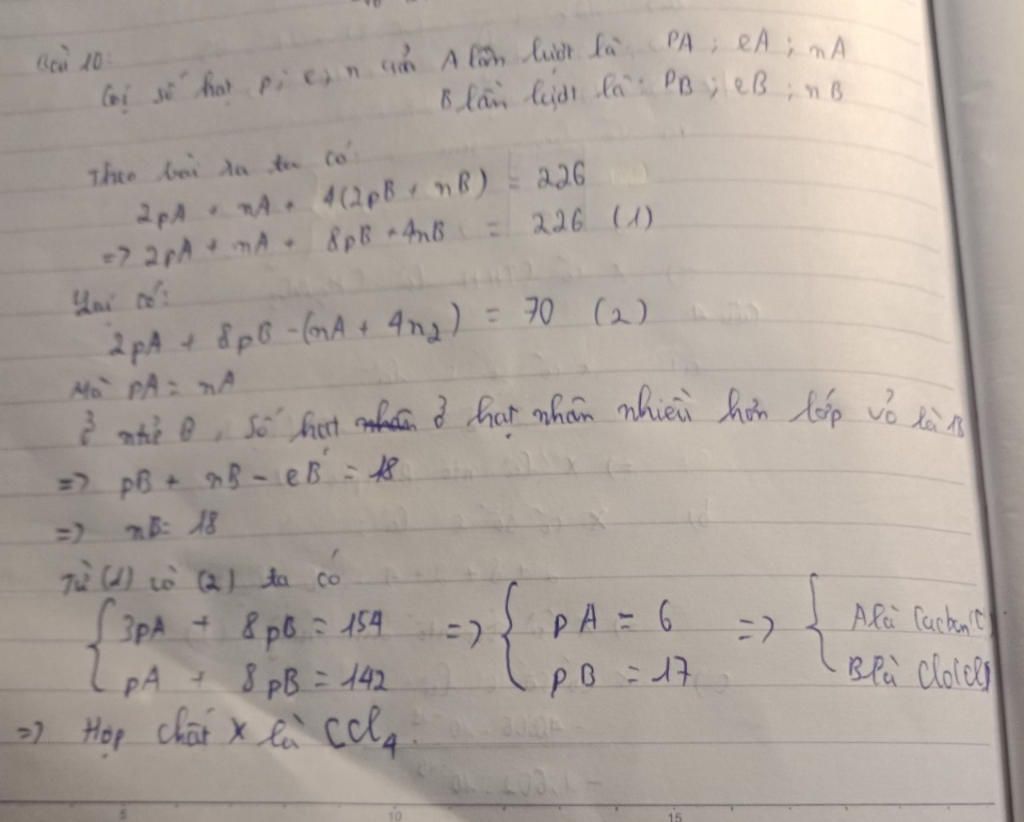 Bài 10:
Gọi số hạt p, e, n của A lần lượt là pA ; eA ; nA
B lần lượt là: pB ; eB ; nB
Theo bài ra ta có:
2pA + nA + 4(2pB + nB) = 226
=> 2pA + nA + 8pB + 4nB = 226 (1)
Lại có:
2pA + 8pB - (nA + 4n₂) = 70 (2)
Mà pA = nA
số hạt ở hạt nhân nhiều hơn lớp vỏ là 18
=> pB + nB - eB = 18
=> nB = 18
Từ (1) và (2) ta có
{ 3pA + 8pB = 154 => { pA = 6 => { A là Cacbon (C)
pA + 8pB = 142 pB = 17 B là Clo (Cl)
=> Hợp chất X là CCl₄.
5 10 15